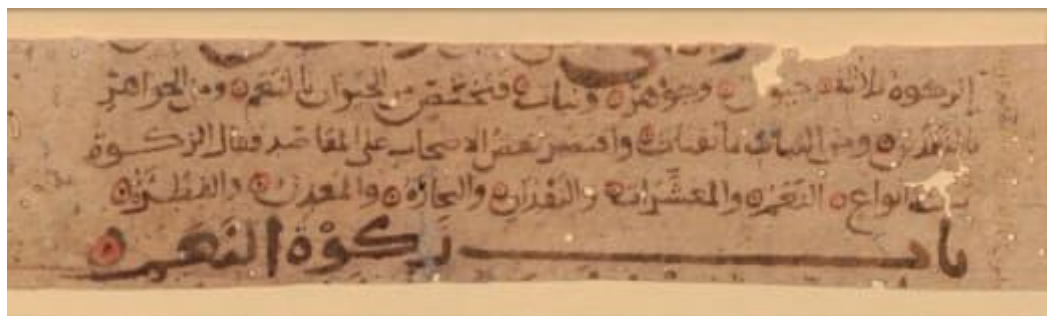 الزكوة ثلاثة حيوان وجوهر ونبات فتختص من الحيوان بالنعم ومن الجواهر
بالنقدين ومن النبات بالمقتات واقتصر بعض الاصحاب على المقاصد فقال الزكوة
ستة انواع النعم والمعشرات والنقدان والتجارة والمعدن والفطرة
باب زكوة النعم